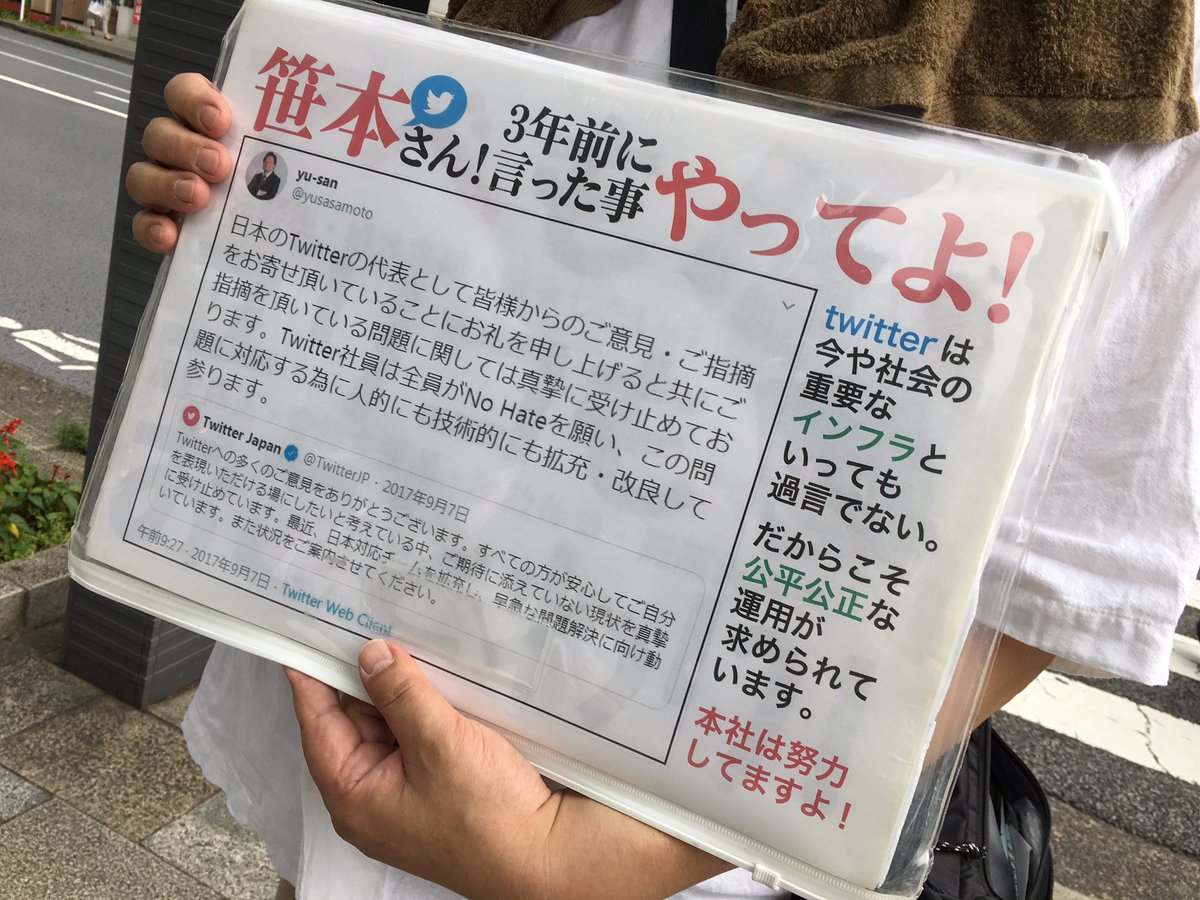 笹本さん!
3年前に
言った事
やってよ!
yu-san
@yusasamoto
日本のTwitterの代表として皆様からのご意見・ご指摘
をお寄せ頂いていることにお礼を申し上げると共にご
指摘を頂いている問題に関しては真摯に受け止めてお
ります。Twitter社員は全員がNo Hateを願い、この問
題に対応する為に人的にも技術的にも拡充・改良して
参ります。
Twitter Japan @TwitterJP · 2017年9月7日
Twitterへの多くのご意見をありがとうございます。すべての方が安心してご自分
を表現いただける場にしたいと考えている中、ご期待に添えていない現状を真摯
に受け止めています。最近、日本対応チームを拡充し、早急な問題解決に向け動
いています。また状況をご案内させてください。
午前9:27 · 2017年9月7日 · Twitter Web Client
twitterは
今や社会の
重要な
インフラと
いっても
過言でない。
だからこそ
公平公正な
運用が
求められて
います。
本社は努力
してますよ!